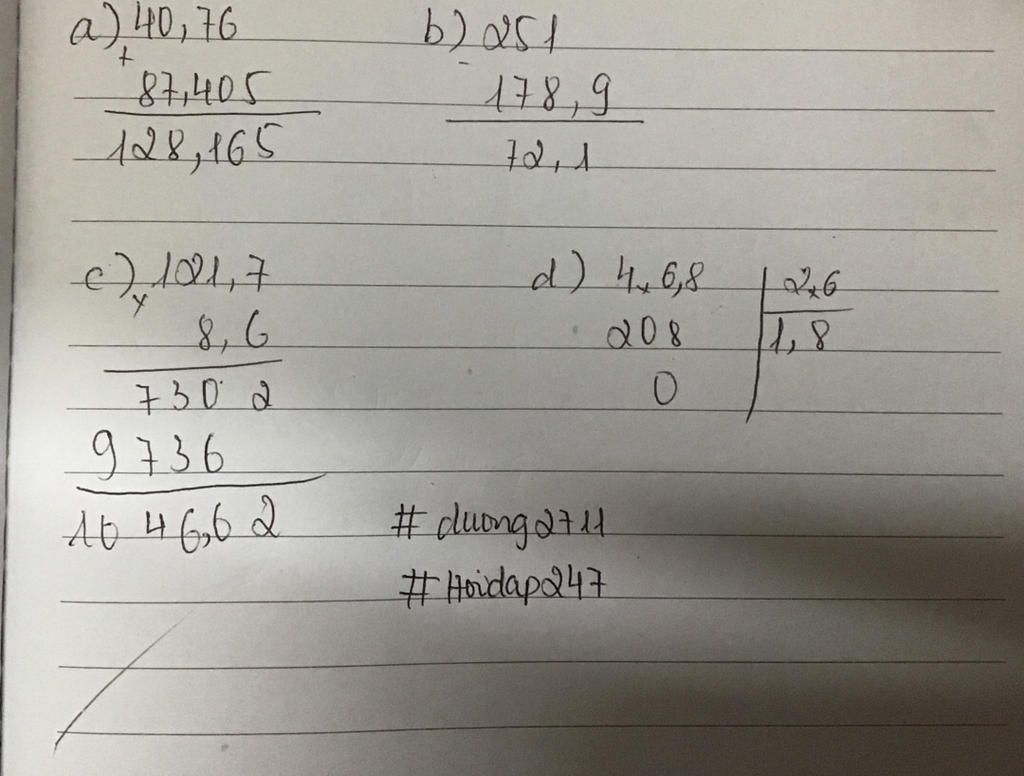 a) 40,76 b) 251
+ -
87,405 178,9
128,165 72,1
c) 121,7 d) 4,6,8 2,6
x
8,6 208 1,8
7302 0
9736
1046,62 # duong2711
#Hoidap247